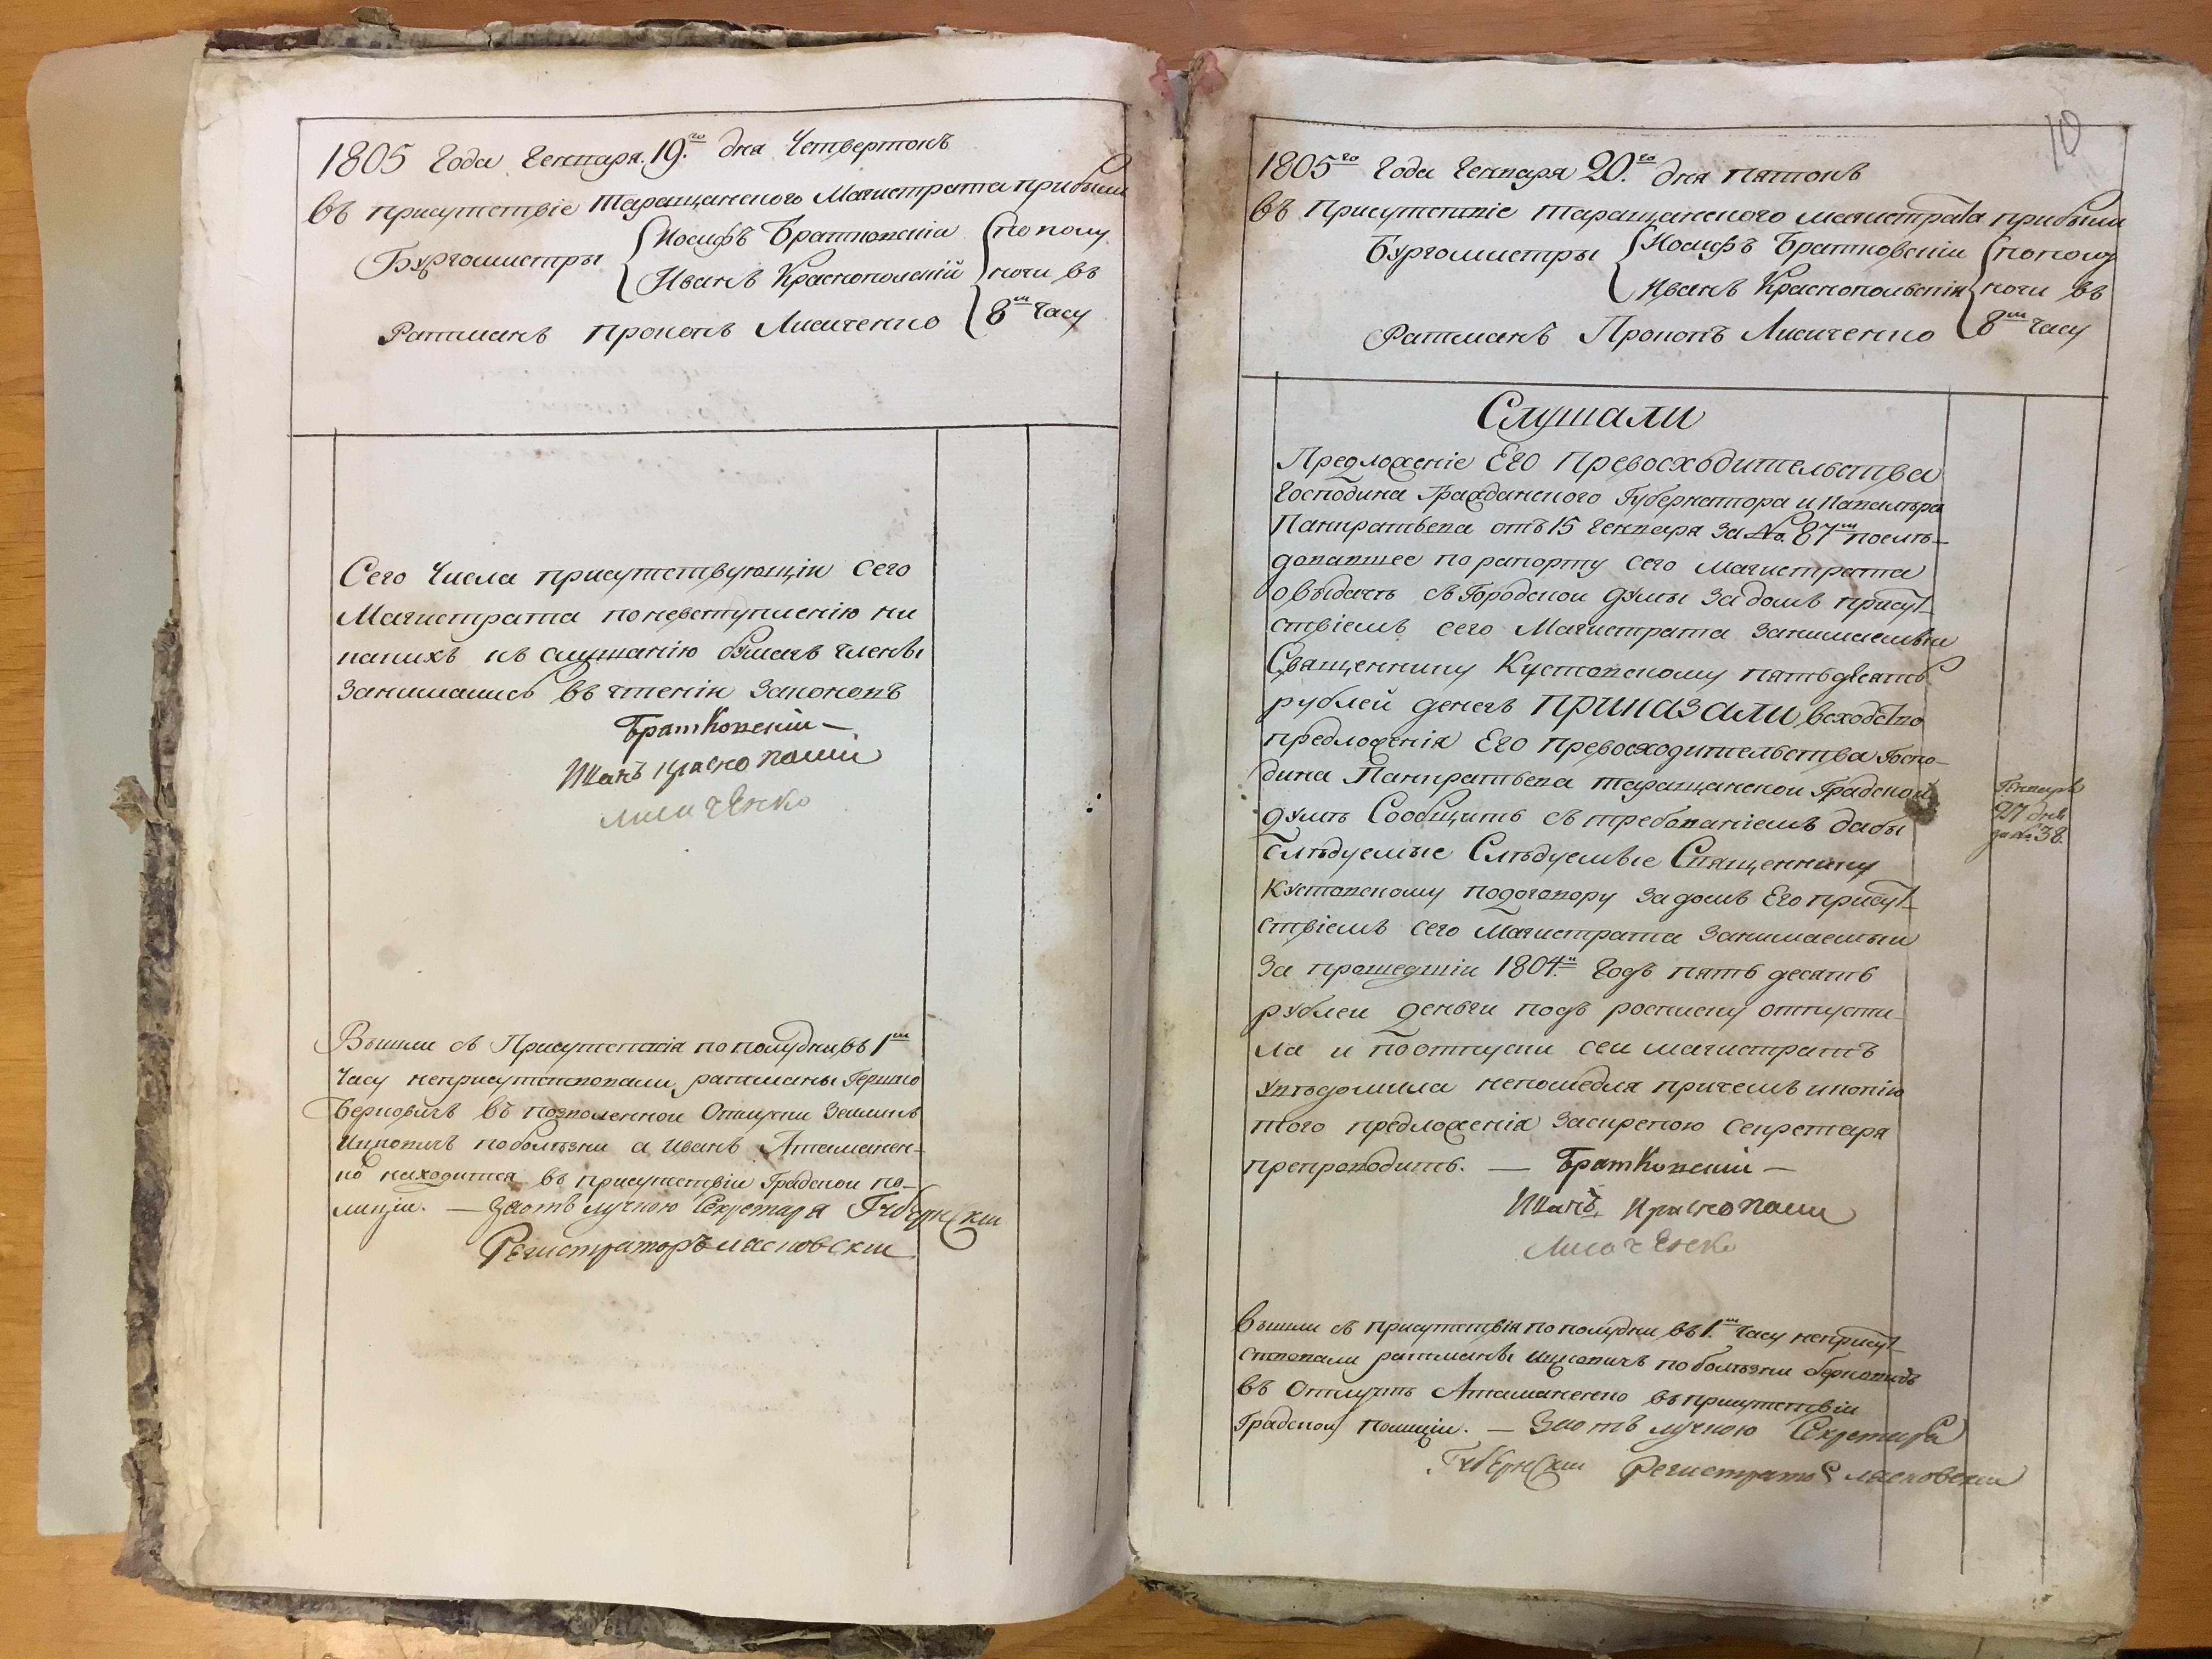 1805 Года Генваря 19.го дня Четвертокъ
въ присутствіе Таращанского Магистрата прибыли
Бургомистры Иосифъ Братковскіи по полу
Иванъ Краснополскій ночи въ
Ратманъ Прокопъ Лисиченко 8м часу
Сего Числа присутствующіи сего
Магистрата по невступленію ни
какихъ къ слушанію бумагъ члены
занимались въ чтеніи законовъ
Братковскіи
Иванъ Краснополски
Лисиченко
Вышли съ Присутствія по полудни въ 1м
часу неприсутствовали ратманы Гершко
Берковичъ въ позволенной Отлучки Зельманъ
Ицковичъ по болезни а Иванъ Атаманен-
ко находится въ присутствіи Градской по-
лиціи. — За отлучкою Секретаря Губернски
Регистраторъ Ласковски
10
1805го Года Генваря 20.го дня пятокъ
въ Присутствіе Таращанского магистрата прибыли
Бургомистры Иосифъ Братковскіи по полу
Иванъ Краснопольскіи ночи въ
Ратманъ Прокопъ Лисиченко 8м часу
Слушали
Предложеніе Его Превосходительства
Господина Гражданского Губернатора и Кавалѣра
Панкратьева отъ 15 Генваря за No. 87м послѣ-
довавшее по рапорту сего магистрата
о выдачѣ съ Городской думы за домъ присут-
ствіемъ сего Магистрата занимаемыи
Священнику Кустовскому пятьдесятъ
рублей денегъ приказали въ сходство
предложенія Его превосходительства Госпо-
дина Панкратьева таращанской Градской
думѣ Сообщить съ требованіемъ дабы
слѣдуемые Слѣдуемые Священнику
Кустовскому по договору за домъ Его присут-
ствіемъ сего Магистрата занимаемыи
за прошедшіи 1804.и Годъ пять десятъ
рублеи деньги подъ росписку отпусти-
ла и по отпуски сеи магистратъ
увѣдомила непомедля причемъ и копію
того предложенія за скрепою секретаря
препроводить. — Братковскіи —
Иванъ Краснополски
Лисиченко
Генваря
27 дня
за No. 38.
Вышли съ присутствія по полудни въ 1.м часу неприсут-
ствовали ратманы Ицковичъ по болѣзни Берковичъ
въ Отлучкѣ Атаманенко въ присутствіи
Градской полиціи. — За отлучкою Секретаря
Губернски Регистраторъ Ласковски